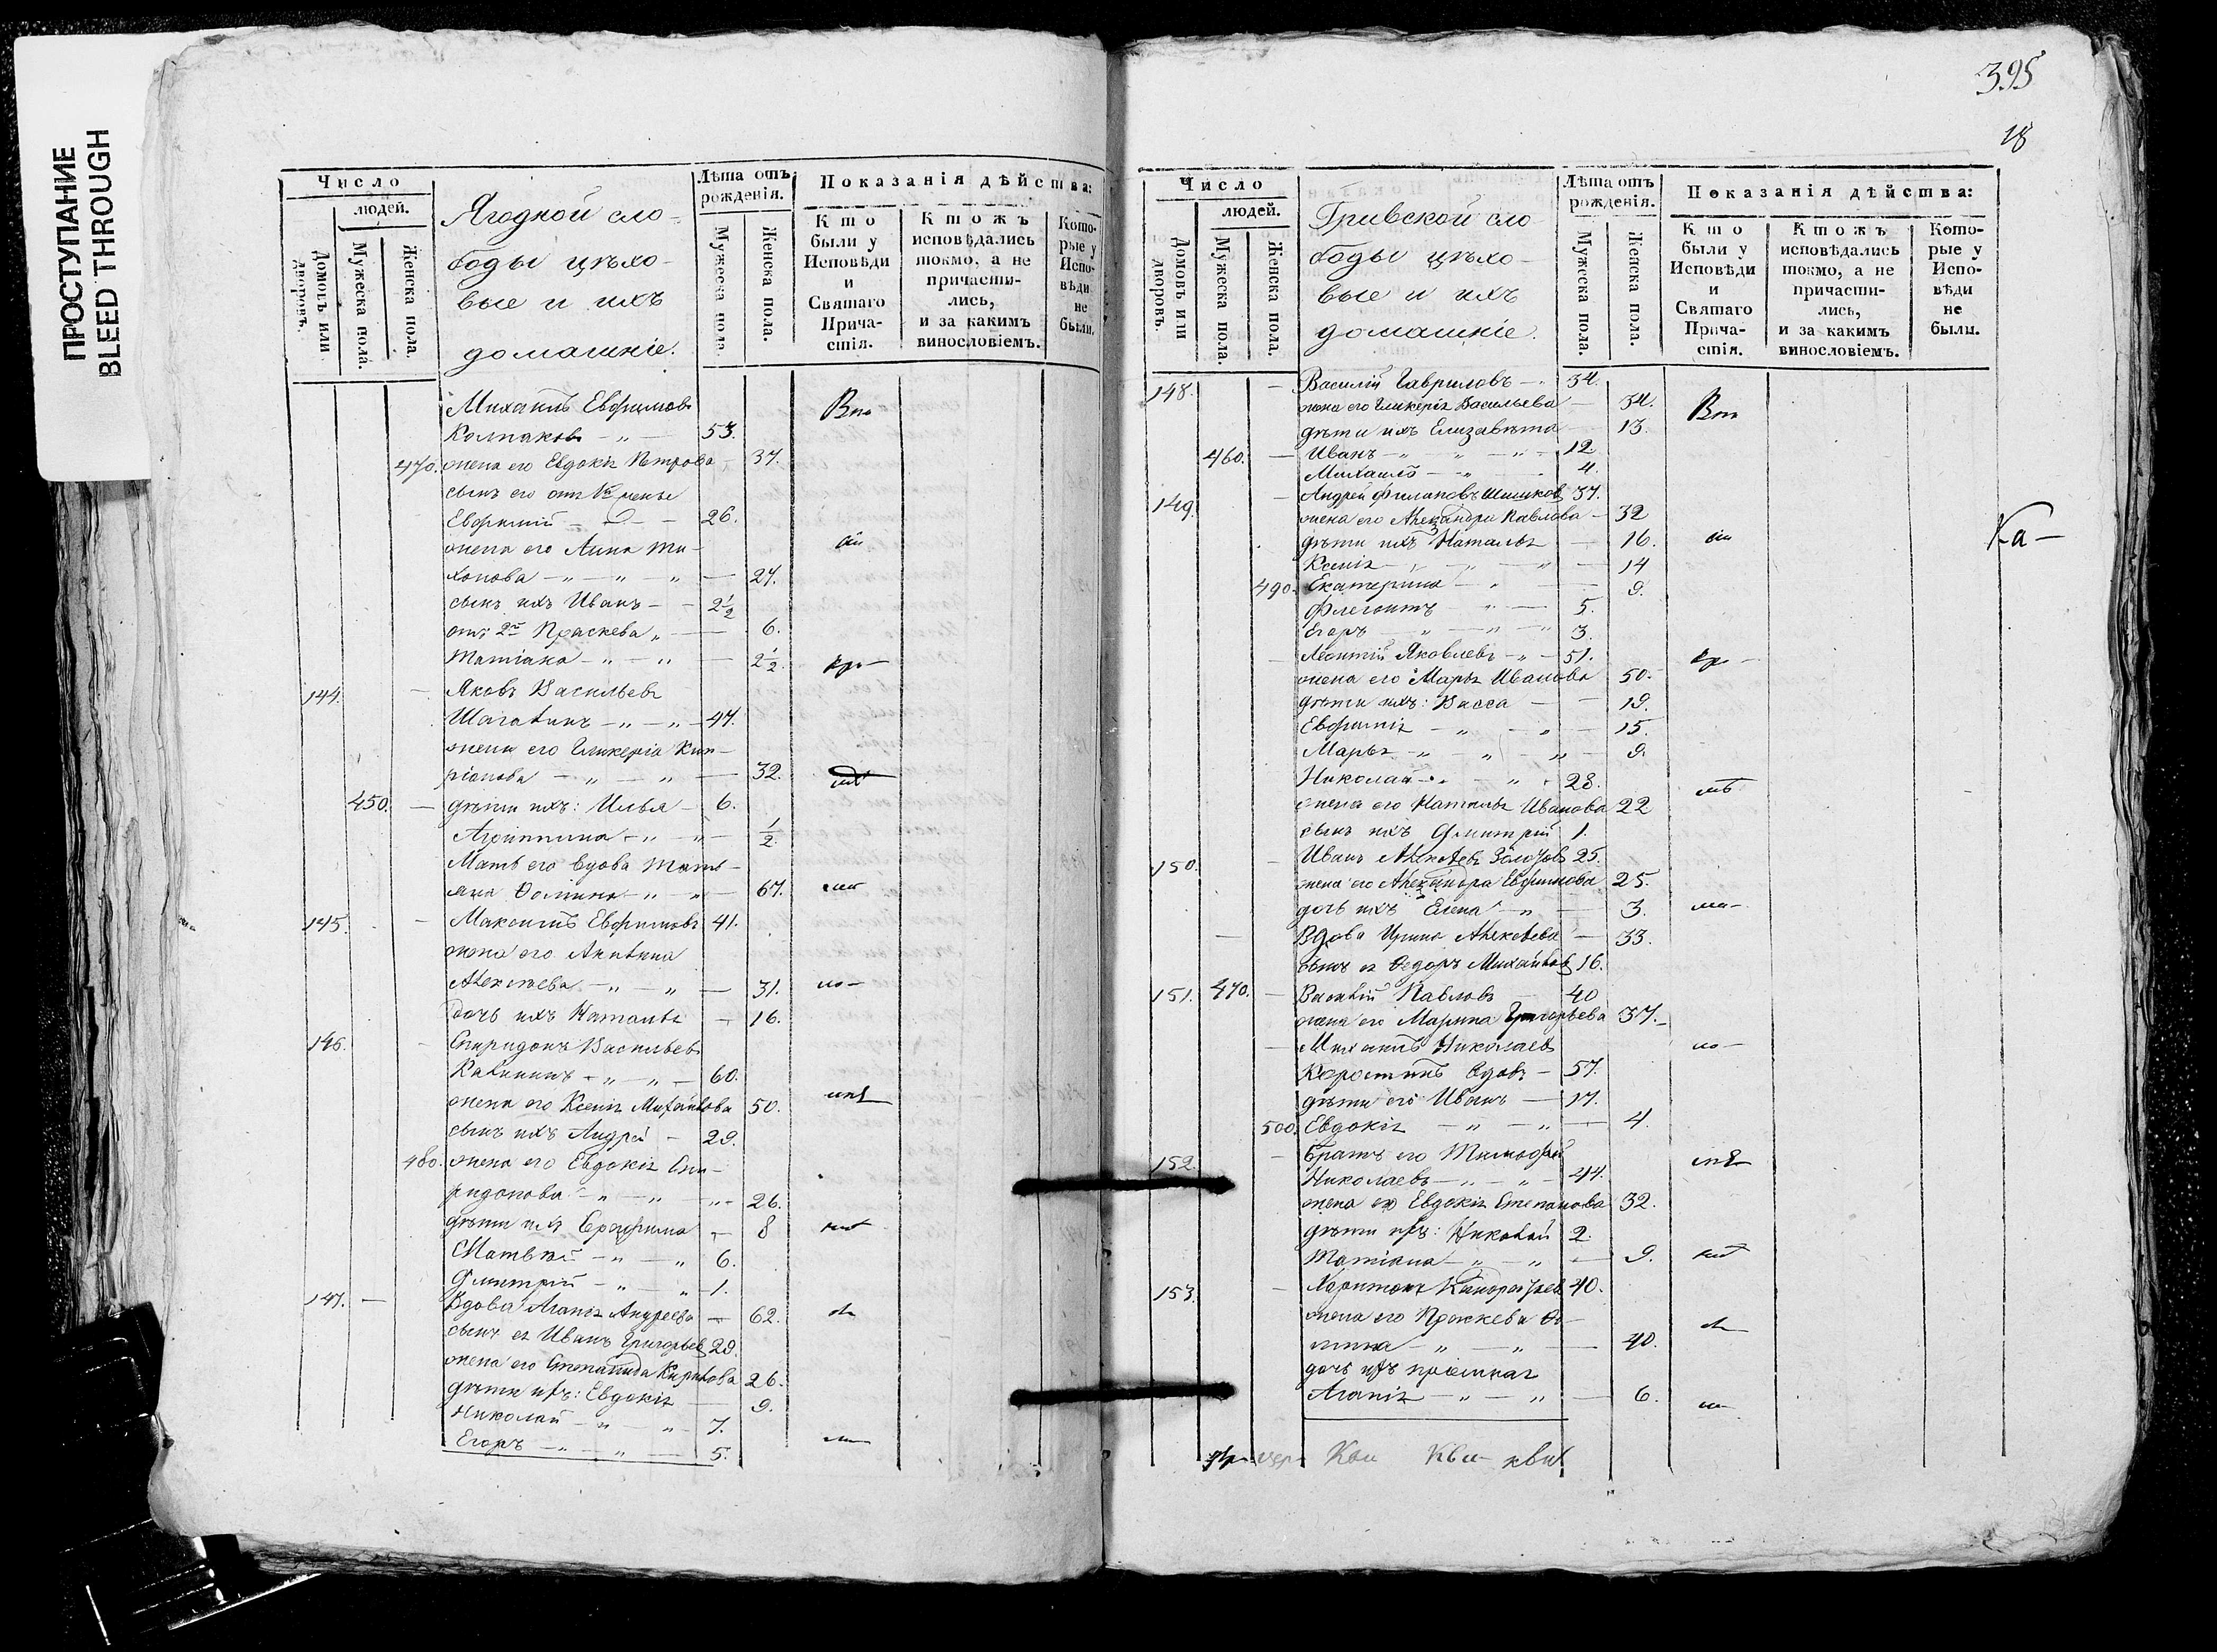 ПРОСТУПАНИЕ
BLEED THROUGH
Число
людей.
Домовъ или дворовъ.
Мужеска пола.
Женска пола.
Ягодной сло-
боды цѣхо-
вые и ихъ
домашніе.
Лѣта отъ рожденія.
Мужеска пола.
Женска пола.
Показанія дѣйства:
Кто были у Исповѣди и Святаго Прича-стія.
Ктожъ исповѣдались токмо, а не причасти-лись, и за какимъ винословіемъ.
Кото-рые у Испо-вѣди не были.
Михаилъ Евфимовъ
Колпаковъ 53.
470. жена его Евдокія Петрова 37.
сынъ его отъ 1й жены
Евфимій 26.
жена его Анна Ти-
хонова 27.
сынъ ихъ Иванъ 2½
отъ 2й Праскева 6.
Татіана 2½.
144. Яковъ Васильевъ
Шагавинъ 47.
жена его Гликерія Кип-
ріанова 32.
450. дѣти ихъ: Илья 6.
Агриппина ½
Мать его вдова Тать-
яна Фомина 67.
145. Максимъ Евфимовъ 41.
жена его Акилина
Алексѣева 31.
дочь ихъ Наталья 16.
146. Спиридонъ Васильевъ
Калининъ 60.
жена его Ксенія Михайлова 50.
сынъ ихъ Андрей 29.
480. жена его Евдокія Спи-
ридонова 26.
дѣти ихъ 8
Матвѣй 6.
Димитрій 1.
147. Вдова Агапія Андреева 62.
сынъ ея Иванъ Григорьевъ 29.
жена его Степанида Кирилова 26.
дѣти ихъ: Евдокія 9.
Николай 7.
Егоръ 5.
395
18
Число
людей.
Домовъ или дворовъ.
Мужеска пола.
Женска пола.
Гривской сло
боды цѣхо-
вые и ихъ
домашніе.
Лѣта отъ рожденія.
Мужеска пола.
Женска пола.
Показанія дѣйства:
Кто были у Исповѣди и Святаго Прича-стія.
Ктожъ исповѣдались токмо, а не причасти-лись, и за какимъ винословіемъ.
Кото-рые у Испо-вѣди не были.
148. Василій Гавриловъ 34.
жена его Гликерія Васильева 34.
дѣти ихъ Елизавета 13.
460. Иванъ 12
Михаилъ 4.
149. Андрей Филаповъ Шишковъ 37.
жена его Александра Павлова 32
дѣти ихъ Наталья 16.
Ксенія 14
490. Екатерина 9.
Флегонтъ 5.
Егоръ 3.
Леонтій Яковлевъ 51.
жена его Марья Иванова 50.
дѣти ихъ: Васса 19.
Евфимія 15.
Марья 9.
Николай 28.
жена его Наталья Иванова 22
сынъ ихъ Димитрій 1.
150. Иванъ Алексѣевъ 25.
жена его Александра Евфимова 25.
дочь ихъ Елена 3.
Вдова Ирина Алексѣева 33.
сынъ ея Федоръ Михайловъ 16.
151. 470. Василій Павловъ 40
жена его Марина Григорьева 37.
Михаилъ Николаевъ
вдовъ 57.
дѣти его Иванъ 17.
500. Евдокія 4.
152. Братъ его Тимофей
Николаевъ 44.
жена его Евдокія Степанова 32.
дѣти ихъ: Николай 2.
Татіана 9.
153. Харитонъ 40.
жена его Праскева Фо-
мина 40.
дочь ихъ пріемная
Агапія 6.